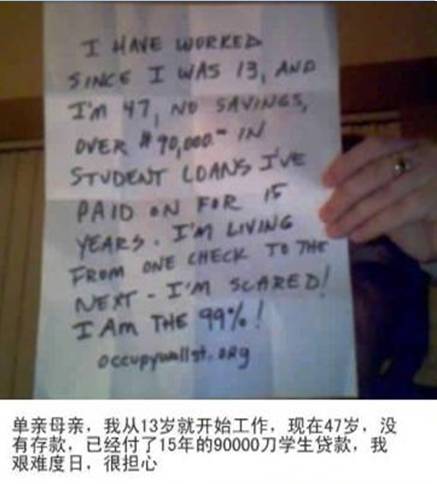 I HAVE WORKED
SINCE I WAS 13, AND
I'M 47, NO SAVINGS,
OVER $90,000.- IN
STUDENT LOANS I'VE
PAID ON FOR 15
YEARS. I'M LIVING
FROM ONE CHECK TO THE
NEXT - I'M SCARED!
I AM THE 99%!
occupywallst.org
单亲母亲，我从13岁就开始工作，现在47岁，没
有存款，已经付了15年的90000刀学生贷款，我
艰难度日，很担心